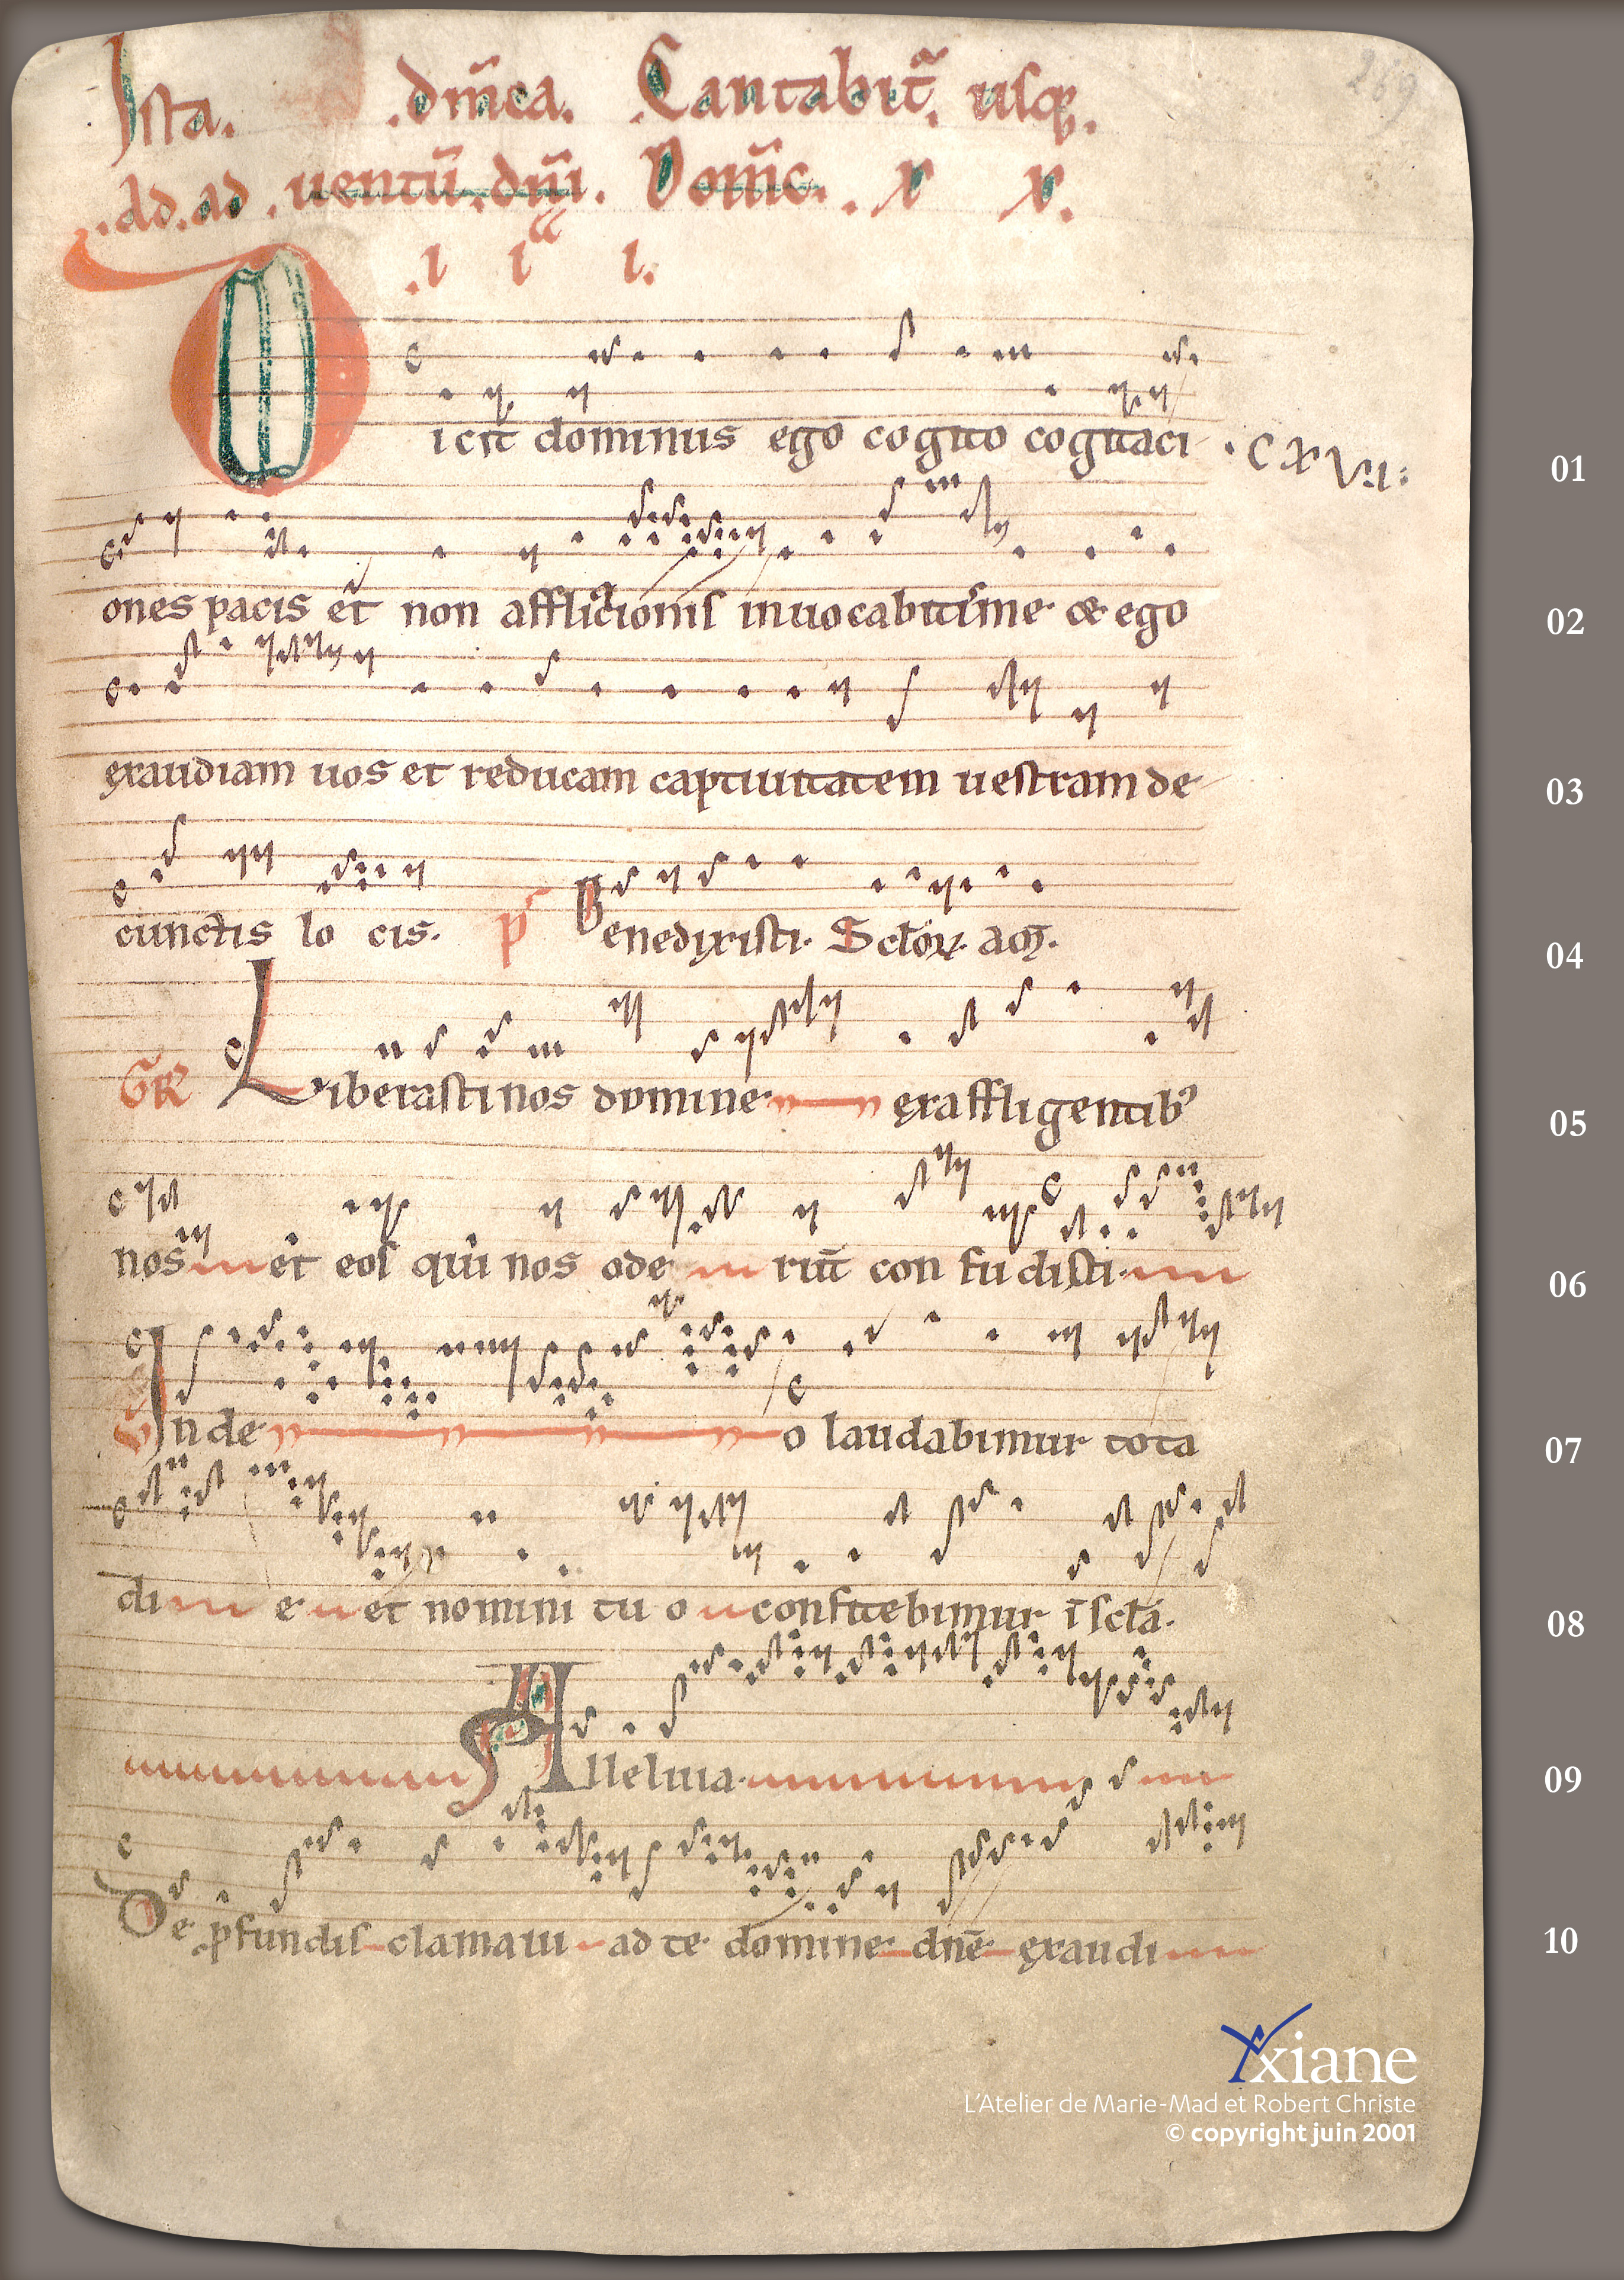 269
Ista. .dm̄ca. .Cantabit̄. usq₃.
.ad.ad.uentū.dn̄i. Domīc. .x x.
.i iͣ i.
Dicit dominus ego cogito cogitaci .C X VI: 01
ones pacis et non afflictionis inuocabitis me et ego 02
exaudiam uos et reducam captiuitatem uestram de 03
cunctis lo cis. p̄s Benedixisti. Sctōꝝ aō. 04
GR Liberasti nos domine ex affligentibꝰ 05
nos et eos qui nos ode rūt con fu disti 06
In de o laudabimur tota 07
di e et nomini tu o confitebimur ī sclā. 08
Alleluia. 09
De ꝓfundis clamaui ad te domine dn̄e exaudi 10
xiane
L'Atelier de Marie-Mad et Robert Christe
© copyright juin 2001